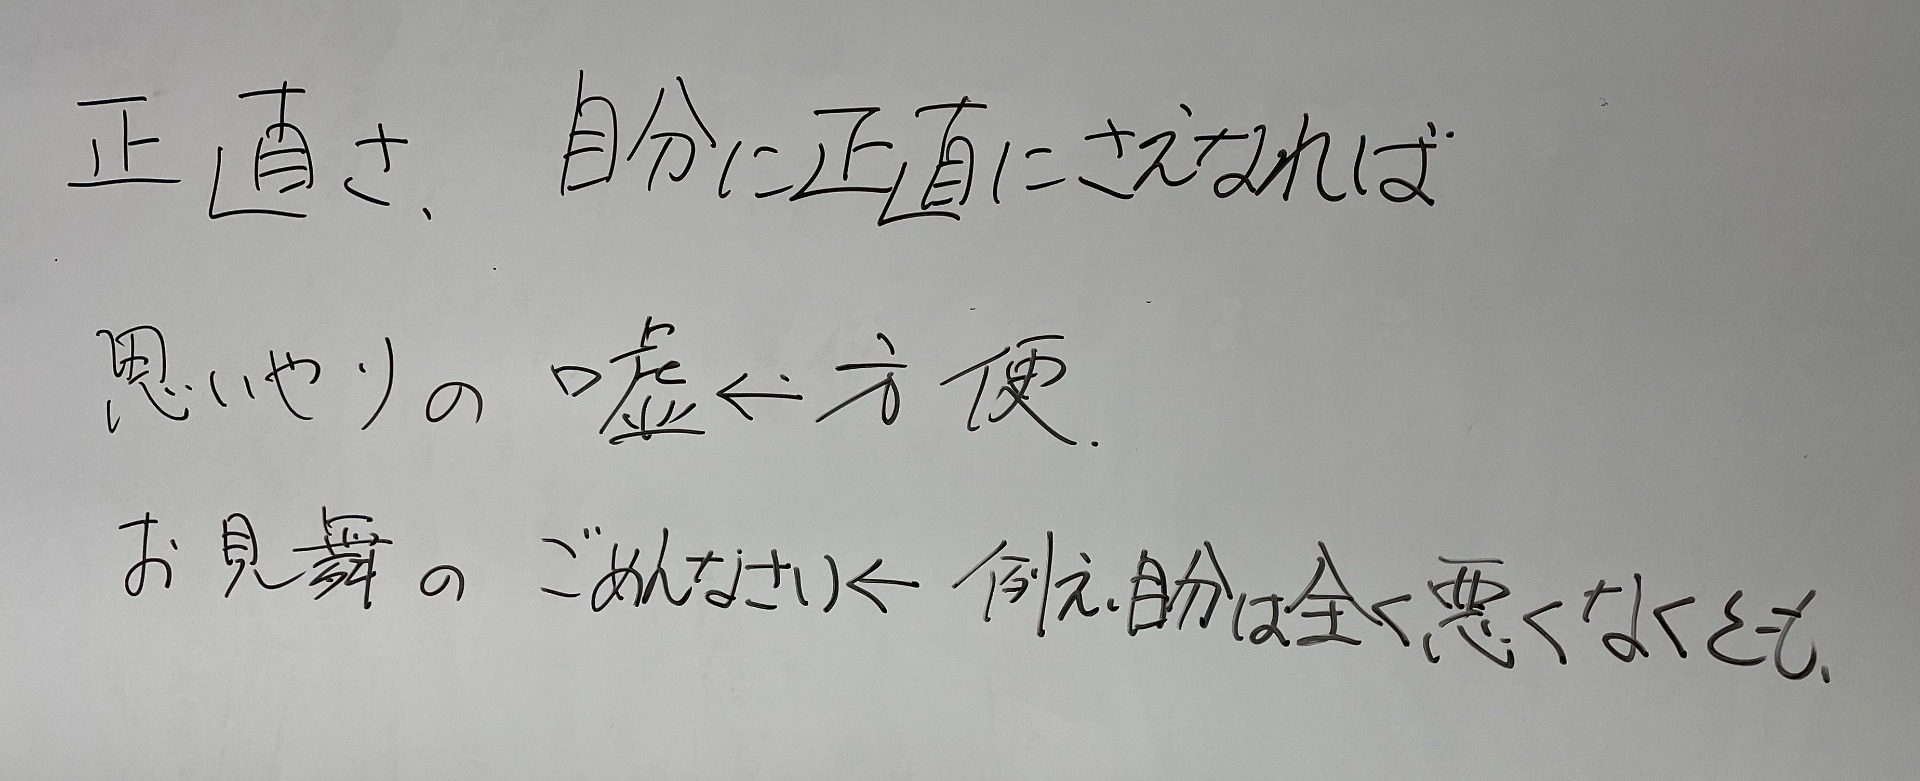 正直さ、 自分に正直にさえなれば
思いやりの 嘘←方便.
お見舞の ごめんなさい← 例え、自分は全く悪くなくとも、